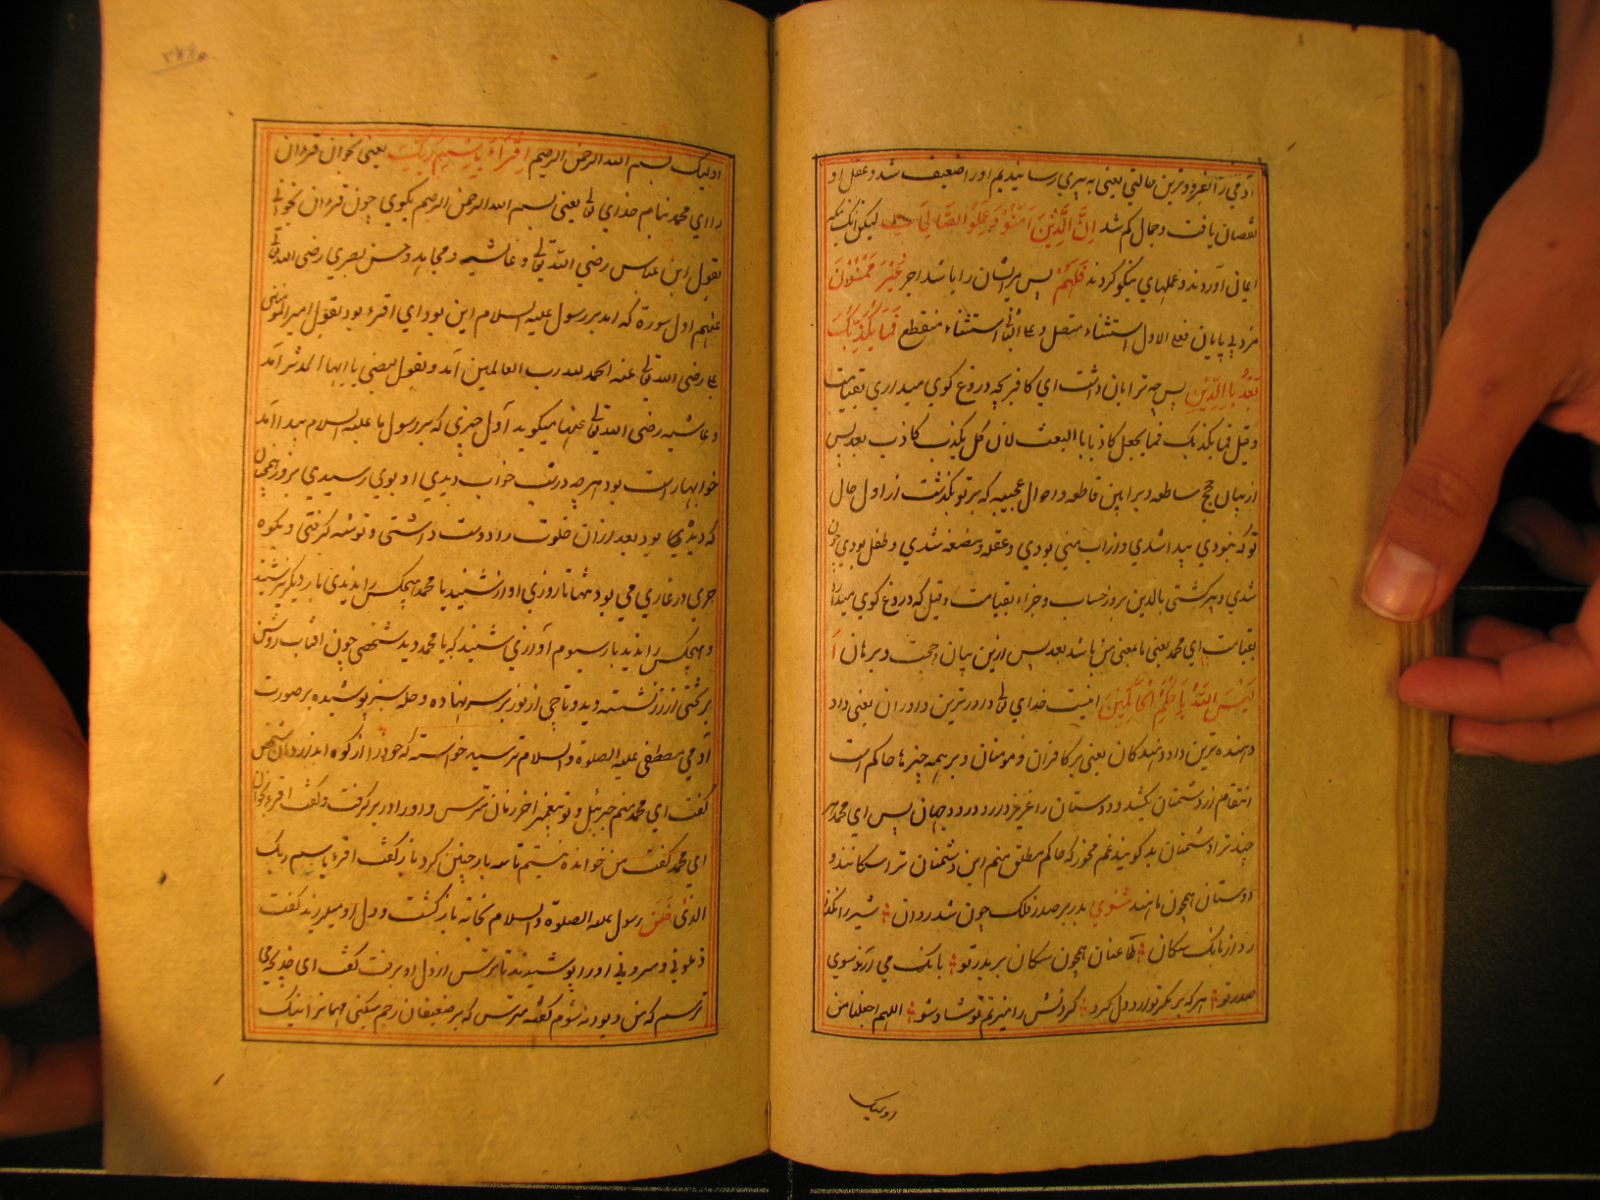 آدمی را بفرودترین حالتی یعنی به پیری رسانیدیم اورا ضعیف شد و عقل او
نقصان یافت و جمال کم شد اِنَّ الَّذِیْنَ اٰمَنُوْ وَعَمِلُو الصَّالِحٰتِ لیکن آنکه
ایمان آوردند و عملهای نیکو کردند فَلَهُمْ پس مریشان را باشد اجر غَیْرَ مَمْنُوْنَ
مزد بی پایان فعلی الاول استثناء متصل و علی الثانی استثناء منقطع فَمَا یُکَذِّبُکَ
بَعْدُ بِاالدِّیْنِ پس چه ترا بران داشت ای کافر بچه دروغ کوی میداری بقیامت
و قیل فما یکذبک فما یجعل کاذبا باالبعث لان کل یکذب کاذب بعد پس
از بیان حجج ساطعه و براهین قاطعه و احوال عجیبه که بر تو بکذشت از اول حال
تو که نبودی پیدا شدی و از اب منی بودی و علقه و مضغه شدی و طفل بودی جوان
شدی و پیر کشتی بالدین بروز حساب و جزاء بقیامت و قیل که دروغ کوی میدارد
بقیامت ای محمد یعنی ما بمعنی من باشد بعد پس ازین بیان حجت و برهان اَ
لَیْسَ اللّٰهُ بِاَحْکَمِ الْحَاکِمِیْنَ انیست خدای تعالی داورترین داوران یعنی داد
دهنده ترین داد دهندکان یعنی بر کافران و مومنان و بر همه چیزها حاکم است
انتقام از دشمنان بکشد و دوستان را عزیز دارد در دو جهان پس ای محمد هر
چند ترا دشمنان بد کویند غم مخور که حاکم مطلق منم این دشمنان ترا سکانند و
دوستان همچون ماهند مثنوی بدر بر صدر فلک چون شد روان شیر را نکذ
رد از بانک سکان طاعنان همچون سکان بر بدر تو بانک می آرند سوی
صدر تو هر که بر مکر تو ارد دل کرو کردنش را میزنم تو شاد شو اللهم اجعلنا من
اولیک
اولیک بسم الله الرحمن الرحیم اِقْرَاْءْ بِاِسْمِ رَبِّکَ یعنی بخوان قران
را ای محمد بنام خدای تعالی یعنی بسم الله الرحمن الرحیم بکوی چون قران بخوانی
بقول ابن عباس رضی الله تعالی و عایشه و مجاهد و حسن بصری رضی الله تعالی
عنهم اول سورة که امد بر رسول علیه السلام این بود ای اقرء بود بقول امیر المومنین
علی رضی الله تعالی عنه الحمد لله رب العالمین آمد و بقول بعضی یا ایها المدثر آمد
و عایشه رضی الله تعالی عنها میکوید آول چیزی که بر رسول ما علیه السلام پیدا آمد
خوابها راست بود هرچه در شب خواب دیدی او بوی رسیدی بروز همچنان
که دیدی بود بعد ازان خلوت را دوست داشتی و توشه کرفتی و بکوه
حری در غاری می بود تنها تا روزی اواز شنید یا محمد هیچکس را ندیدی بار دیکر شنید
و هیچکس را ندید بار سیوم آوازی شنید که یا محمد دید شخصی چون افتاب روشن
بر تختی از زر نشسته دید و تاجی از نور بر سر نهاده و حله سبز پوشیده بر صورت
آدمی مصطفی علیه الصلوة والسلام ترسید خواست که خود را از کوه اندازد آن شخص
کفت ای محمد منم جبرئیل و تو پیغمبر اخر زمان مترس و اورا در بر کرفت و کفت اقرء بخوان
ای محمد کفت من خوانده نیستم تا سه بار چنین کرد باز کفت اقرء باسم ربک
الذی خَلَقَ رسول علیه الصلوة والسلام بخانه باز کشت و دل او میلرزید کفت
ذملونی و دسرونی اورا پوشیدند تا ترس از دل او برفت کفت ای خدیجه می
ترسم که من دیوانه شوم کفته مترس که بر ضعیفان رحم میکنی مهمانرا نیک